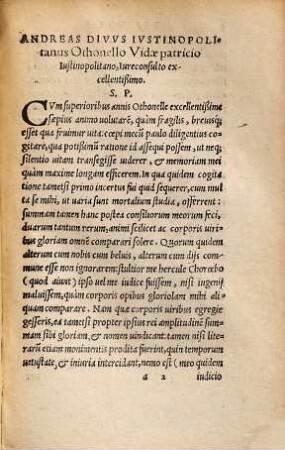 ANDREAS DIVVS IVSTINOPOLI-
tanus Othonello Vidæ patricio
Iustinopolitano, Iureconsulto ex-
cellentißimo.
S. P.
CVm superioribus annis Othonelle excellentißime
sæpius animo uolutarē, quàm fragilis, breuisq́;
esset qua fruimur uita: cœpi mecū paulo diligentius co-
gitare, qua potißimū ratione id assequi possem, ut neq;
silentio uitam transegisse uiderer, & memoriam mei
quàm maxime longam efficerem. In qua quidem cogita
tione tametsi primo incertus fui quid sequerer, cum mul
ta se mihi, ut uaria sunt mortalium studia, offerrent:
summam tamen hanc postea consiliorum meorum feci,
duarum tantum rerum, animi scilicet ac corporis uiri-
bus gloriam omnē comparari solere. Quorum quidem
alterum cum nobis cum beluis, alterum cum dijs com-
mune esse non ignorarem: stultior me hercule Chorœbo
(quod aiunt) ipso uel me iudice fuissem, nisi ingenij
maluissem, quàm corporis opibus gloriolam mihi ali-
quam comparare. Nam quæ corporis uiribus egregie
gesseris, ea tametsi propter ipsius rei amplitudinē sum-
mam sibi gloriam, & nomen uindicant: tamen nisi lite-
rarū etiam monimentis prodita fuerint, quin temporum
uetustate, & iniuria intercidant, nemo est (meo quidem
a 2 iudicio